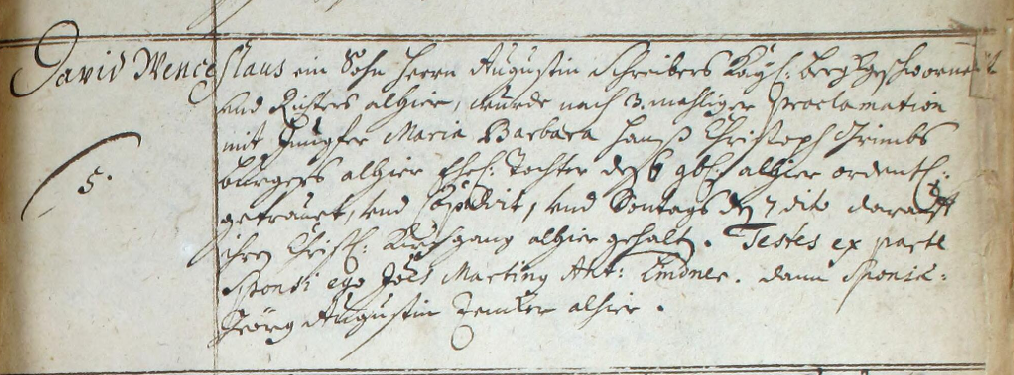 David Wenceslaus ein Sohn Herrn Augustin Schreibers Kayß: berggeschworne
und Richters alhier, wurde nach 3. mahliger proclamation
mit Jungfer Maria Barbara Hanß Christoph Grimbs
burgers alhier Ehel: Tochter deß 5 9b: alhier ordentl:
getrauet, und Copulirt, und Sontags den 7 dito darauff
ihren Christl: Kirchgang alhier gehalt. Testes ex parte
5.
Sponsi ego Joës Marting Ant: Lindner. dann Sponsae:
Georg Augustin Zenker alhier.